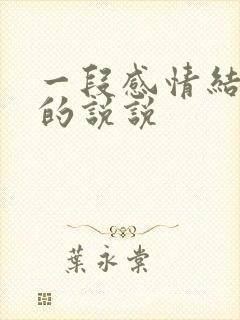 一段感情結
的說說
葉永棠